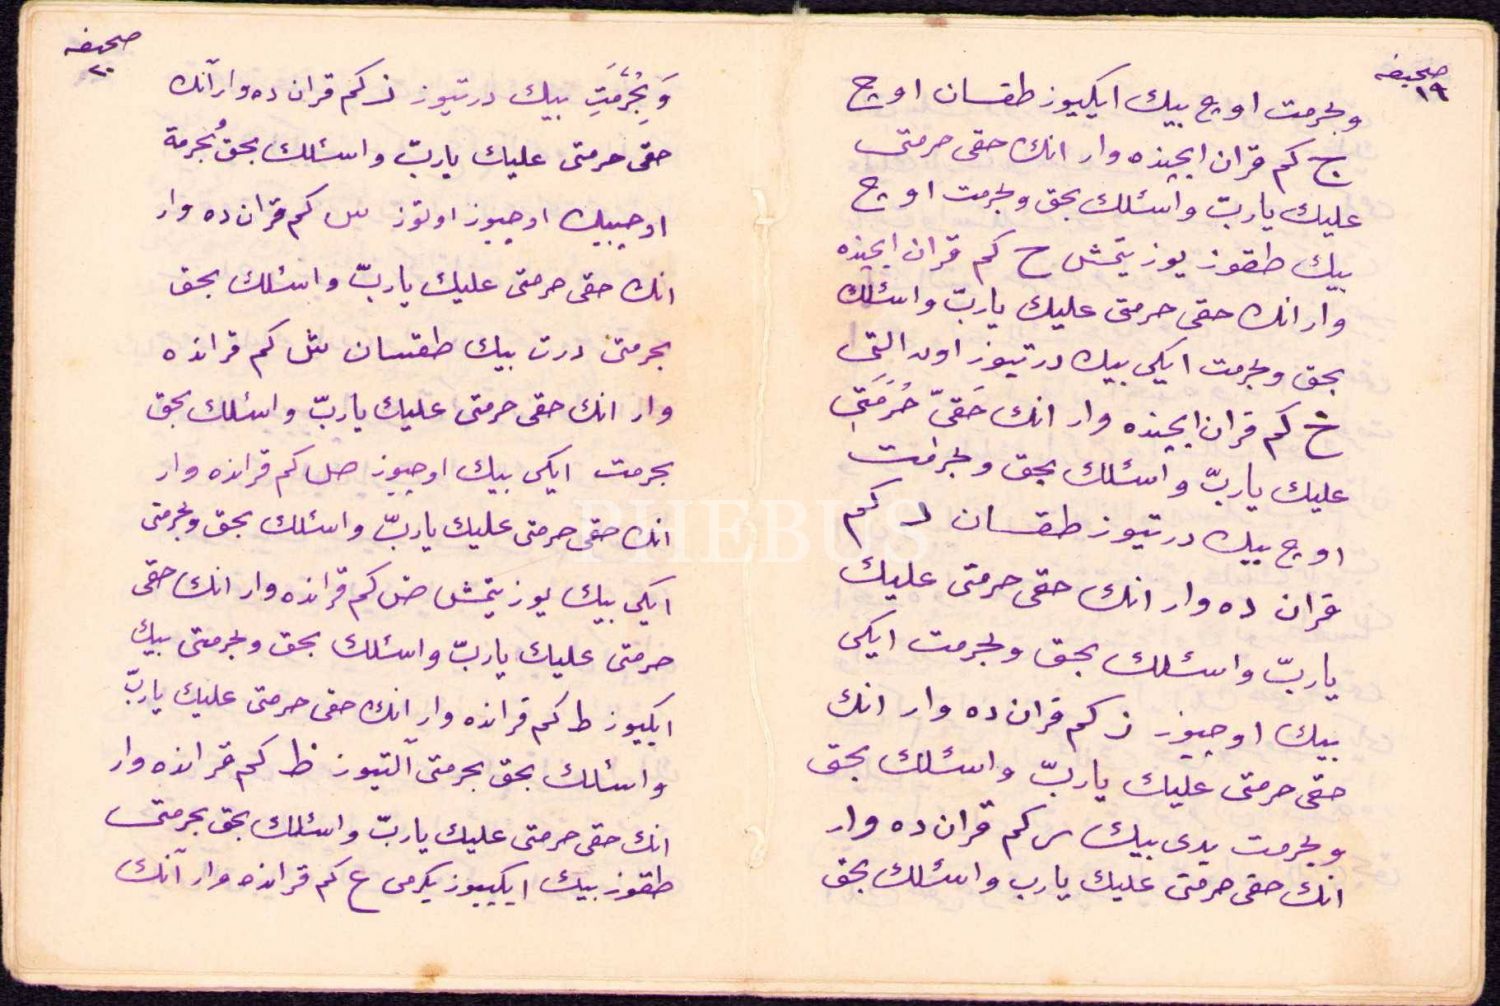 صحيفه
١٩
وبحرمت اوچ بيك ايكيوز طقسان اوچ
ج كم قران ايچنده وار انك حقى حرمتى
عليك يا ربّ واسئلك بحق وبحرمت اوچ
بيك طقوز يوز يتمش ح كم قران ايچنده
وار انك حقى حرمتى عليك يا ربّ واسئلك
بحق وبحرمت ايكى بيك درتيوز اون التى
خ كم قران ايچنده وار انك حَقىّ حُرْمَتِى
عليك يا ربّ واسئلك بحق وبحرمت
اوچ بيك درتيوز طقسان د كم
قران ده وار انك حقى حرمتى عليك
يا ربّ واسئلك بحق وبحرمت ايكى
بيك اوچيوز ز كم قران ده وار انك
حقى حرمتى عليك يا ربّ واسئلك بحق
وبحرمت يدى بيك ر كم قران ده وار
انك حقى حرمتى عليك يا رب واسئلك بحق
صحيفه
٢٠
وَبِحُرْمَتِ بيك درتيوز ز كم قران ده وار آنك
حقى حرمتى عليك يا ربّ واسئلك بحق بُحرمة
اوچبيك اوچيوز اوتوز س كم قران ده وار
انك حقى حرمتى عليك يا ربّ واسئلك بحق
بحرمتى درت بيك طقسان ش كم قرانده
وار انك حقى حرمتى عليك يا ربّ واسئلك بحق
بحرمت ايكى بيك اوچيوز ص كم قرانده وار
PHEBUS
انك حقى حرمتى عليك يا ربّ واسئلك بحق وبحرمتى
ايكى بيك يوز يتمش ض كم قرانده وار انك حقى
حرمتى عليك يا ربّ واسئلك بحق وبحرمتى بيك
ايكيوز ط كم قرانده وار آنك حقى حرمتى عليك يا ربّ
واسئلك بحق بحرمتى آلتيوز ظ كم قرانده وار
انك حقى حرمتى عليك يا ربّ واسئلك بحق بحرمتى
طقوز بيك ايكييوز يكرمى ع كم قرانده وار آنك